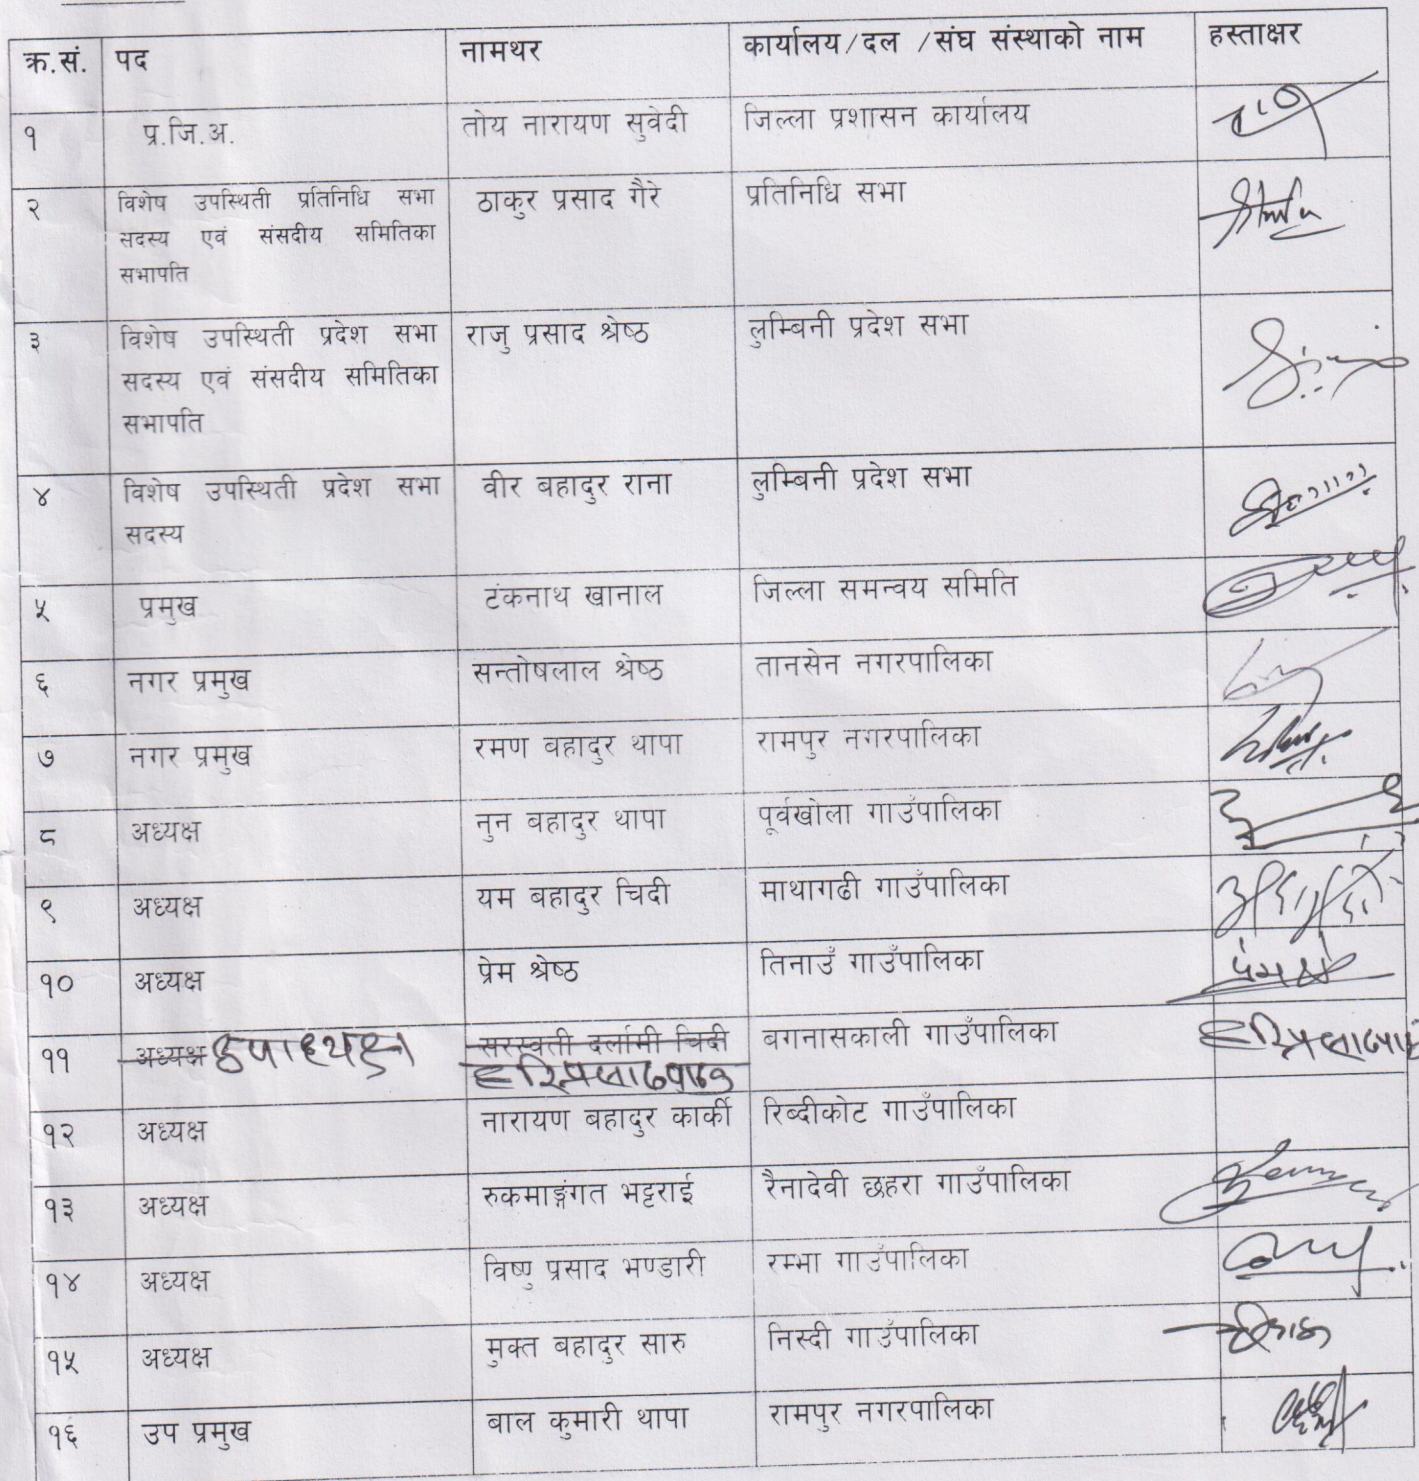 क्र.सं. पद नामथर कार्यालय/दल /संघ संस्थाको नाम हस्ताक्षर
१ प्र.जि.अ. तोय नारायण सुवेदी जिल्ला प्रशासन कार्यालय
२ विशेष उपस्थिती प्रतिनिधि सभा ठाकुर प्रसाद गैरे प्रतिनिधि सभा
सदस्य एवं संसदीय समितिका
सभापति
३ विशेष उपस्थिती प्रदेश सभा राजु प्रसाद श्रेष्ठ लुम्बिनी प्रदेश सभा
सदस्य एवं संसदीय समितिका
सभापति
४ विशेष उपस्थिती प्रदेश सभा वीर बहादुर राना लुम्बिनी प्रदेश सभा
सदस्य
५ प्रमुख टंकनाथ खानाल जिल्ला समन्वय समिति
६ नगर प्रमुख सन्तोषलाल श्रेष्ठ तानसेन नगरपालिका
७ नगर प्रमुख रमण बहादुर थापा रामपुर नगरपालिका
८ अध्यक्ष नुन बहादुर थापा पूर्वखोला गाउँपालिका
९ अध्यक्ष यम बहादुर चिदी माथागढी गाउँपालिका
१० अध्यक्ष प्रेम श्रेष्ठ तिनाउँ गाउँपालिका
११ अध्यक्ष उपाध्यक्ष सरस्वती दर्लामी चिदी बगनासकाली गाउँपालिका
१२ अध्यक्ष नारायण बहादुर कार्की रिब्दीकोट गाउँपालिका
१३ अध्यक्ष रुकमाङ्गंगत भट्टराई रैनादेवी छहरा गाउँपालिका
१४ अध्यक्ष विष्णु प्रसाद भण्डारी रम्भा गाउँपालिका
१५ अध्यक्ष मुक्त बहादुर सारु निस्दी गाउँपालिका
१६ उप प्रमुख बाल कुमारी थापा रामपुर नगरपालिका